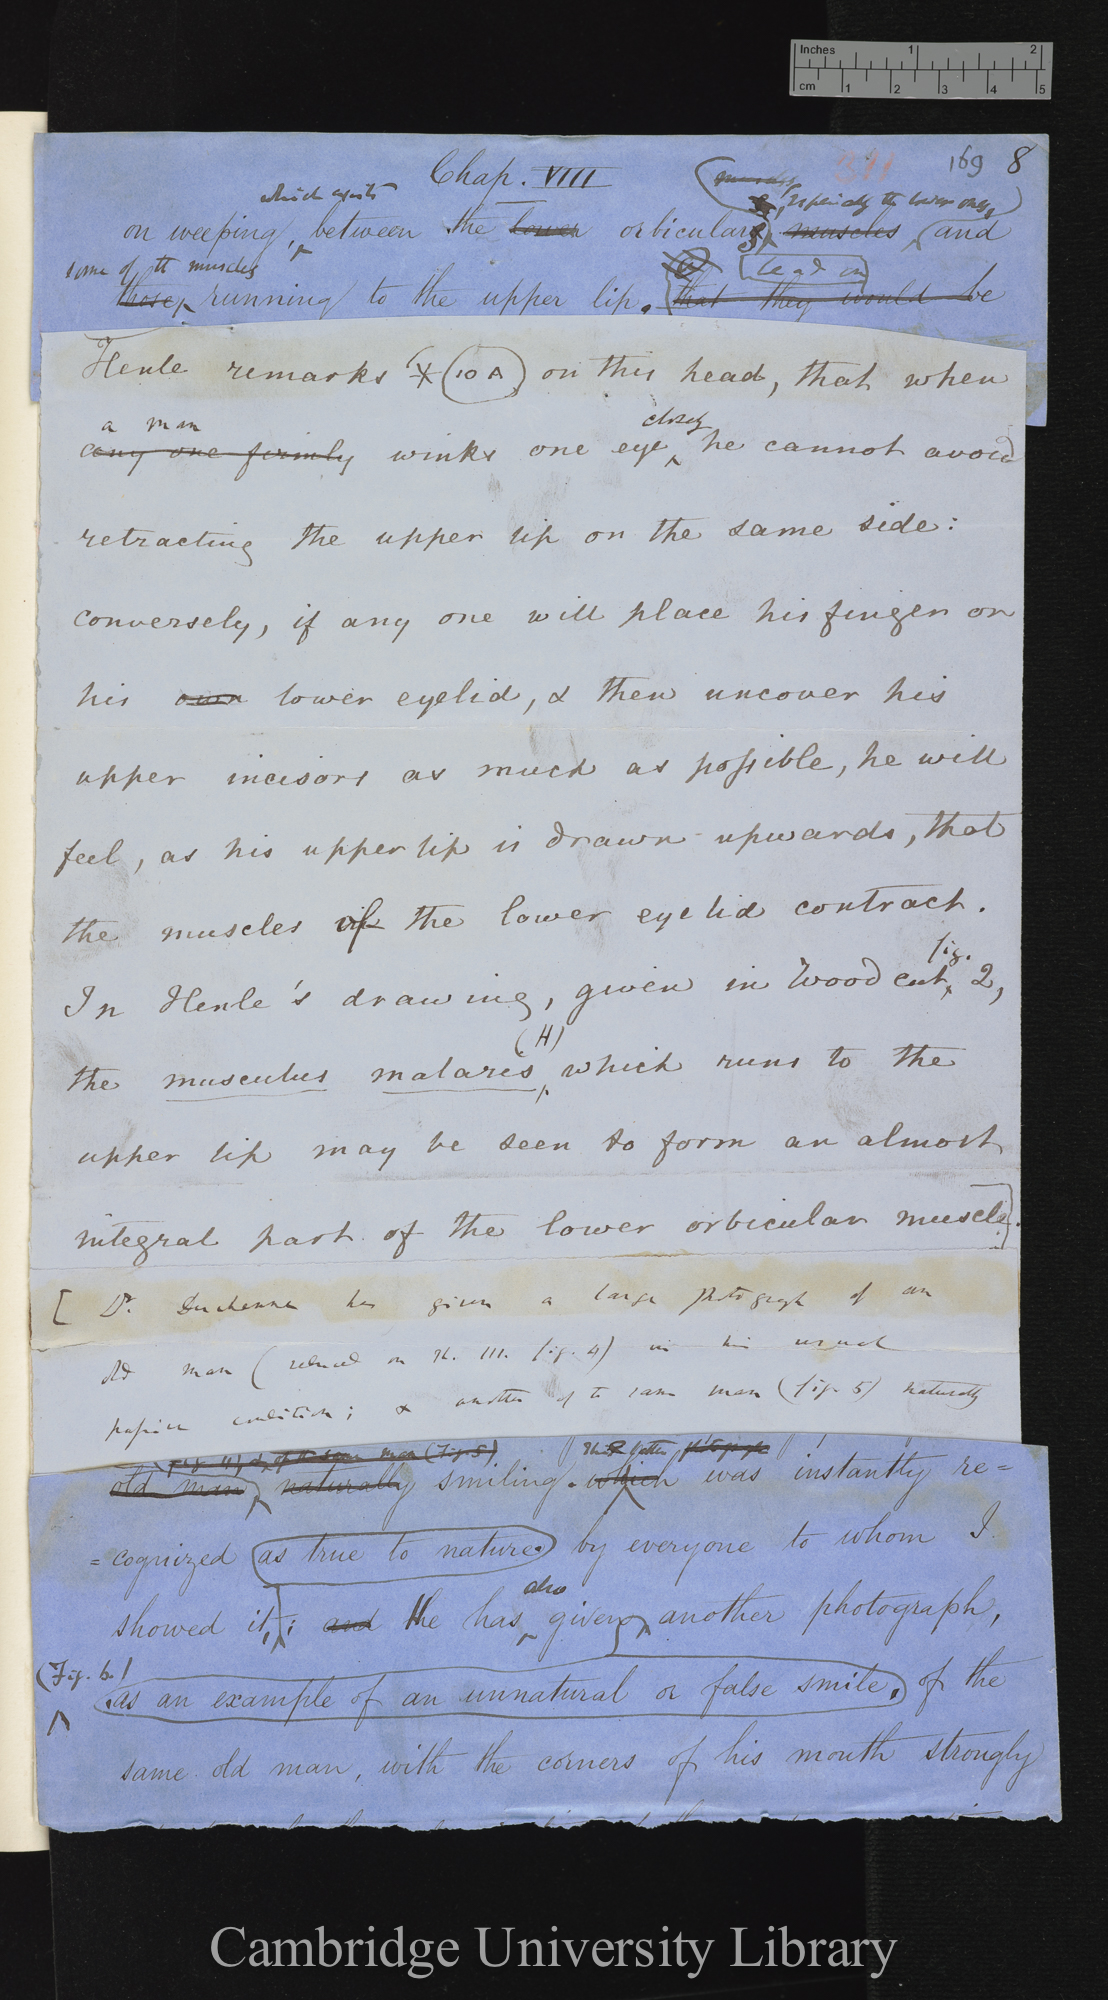 Inches 1 2
cm 1 2 3 4 5
169 8
Chap. VIII
which exists
especially the lower ones,
on weeping, between the lower orbiculars, muscles and
some of the muscles
lead in
those running to the upper lip. that they would be
Henle remarks (10 A) on this head, that when
a man closely
any one firmly winks one eye he cannot avoid
retracting the upper lip on the same side:
conversely, if any one will place his finger on
his own lower eyelid, & then uncover his
upper incisors as much as possible, he will
feel, as his upper lip is drawn upwards, that
the muscles of the lower eyelid contract.
fig.
In Henle's drawing, given in Woodcut, 2,
(H)
the musculus malaris, which runs to the
upper lip may be seen to form an almost
integral part of the lower orbicular muscle.
[ Dr. Duchenne has given a large photograph of an
old man (reduced on Pl. III. fig. 4) in his usual
passive condition; & another of the same man (fig. 5) naturally
of the same man (Fig. 5) This latter photograph
old man naturally smiling. which was instantly re=
=cognized as true to nature. by everyone to whom I
also
showed it,: and He has given another photograph,
(Fig. 6.)
as an example of an unnatural or false smile, of the
same old man, with the corners of his mouth strongly
Cambridge University Library